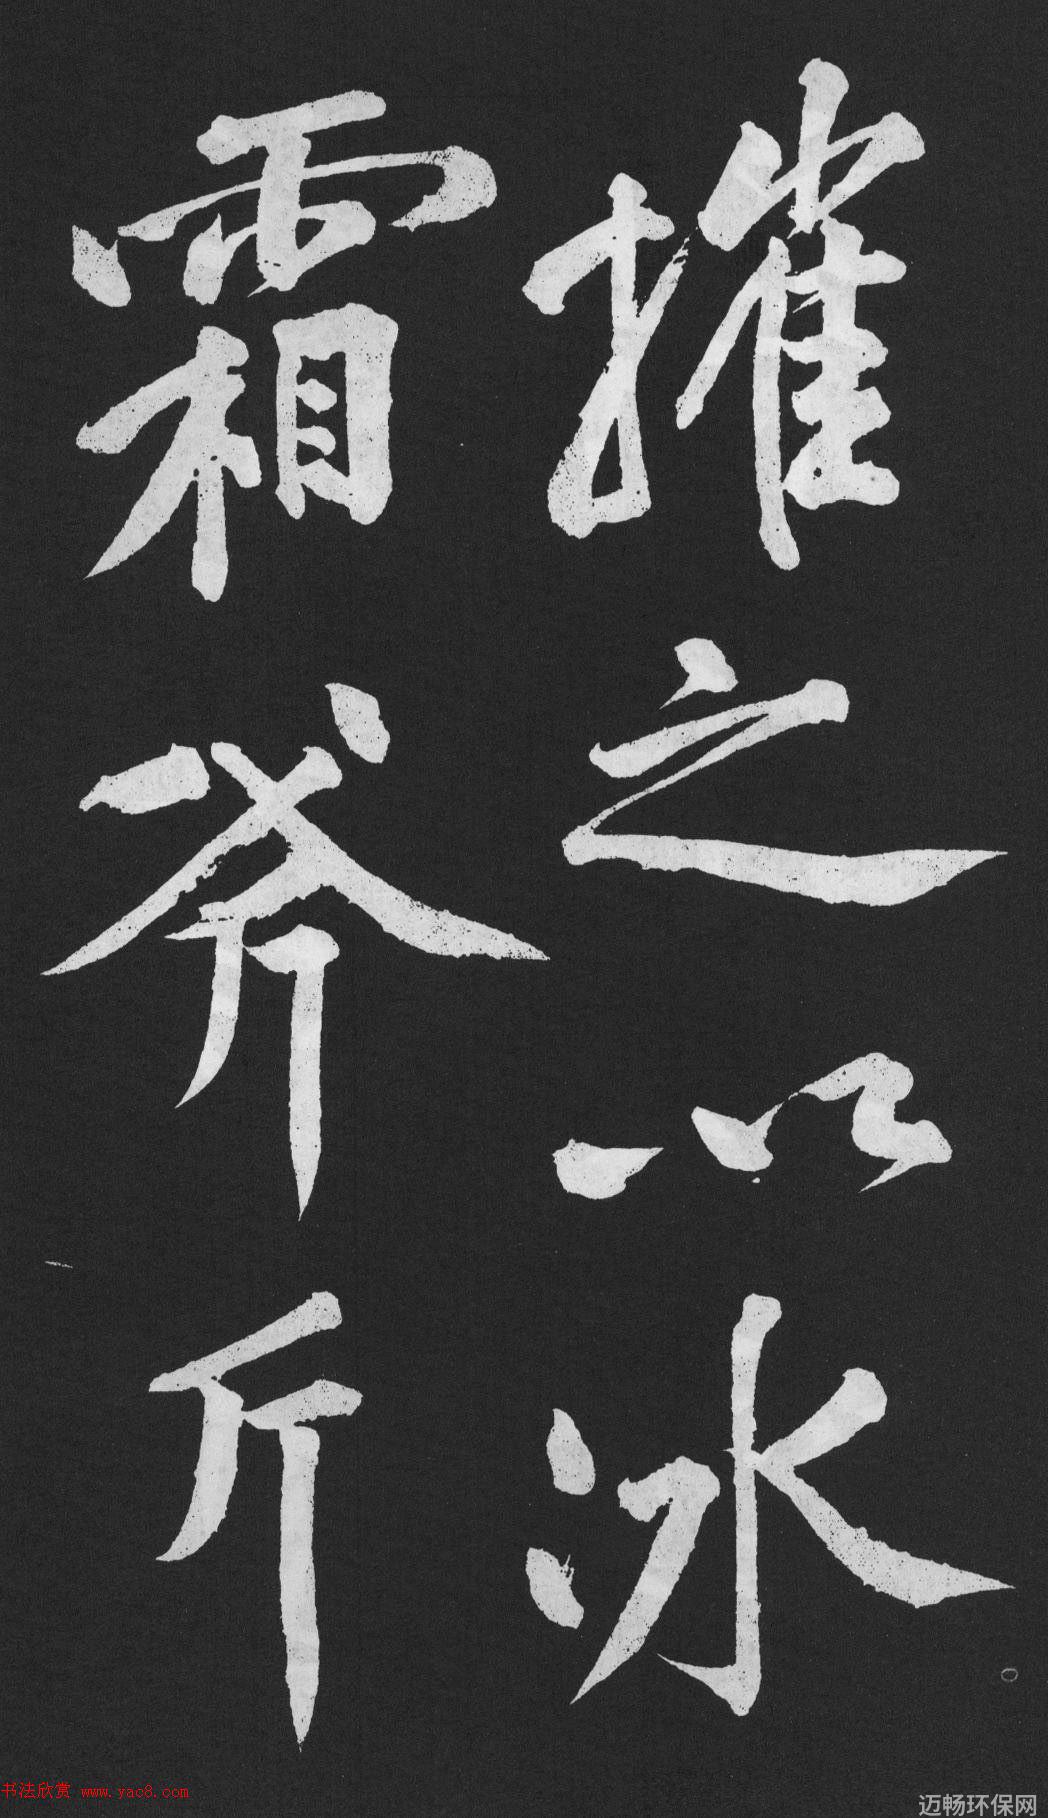 摧之以冰
霜斧斤
书法欣赏 www.yac8.com
迈畅环保网